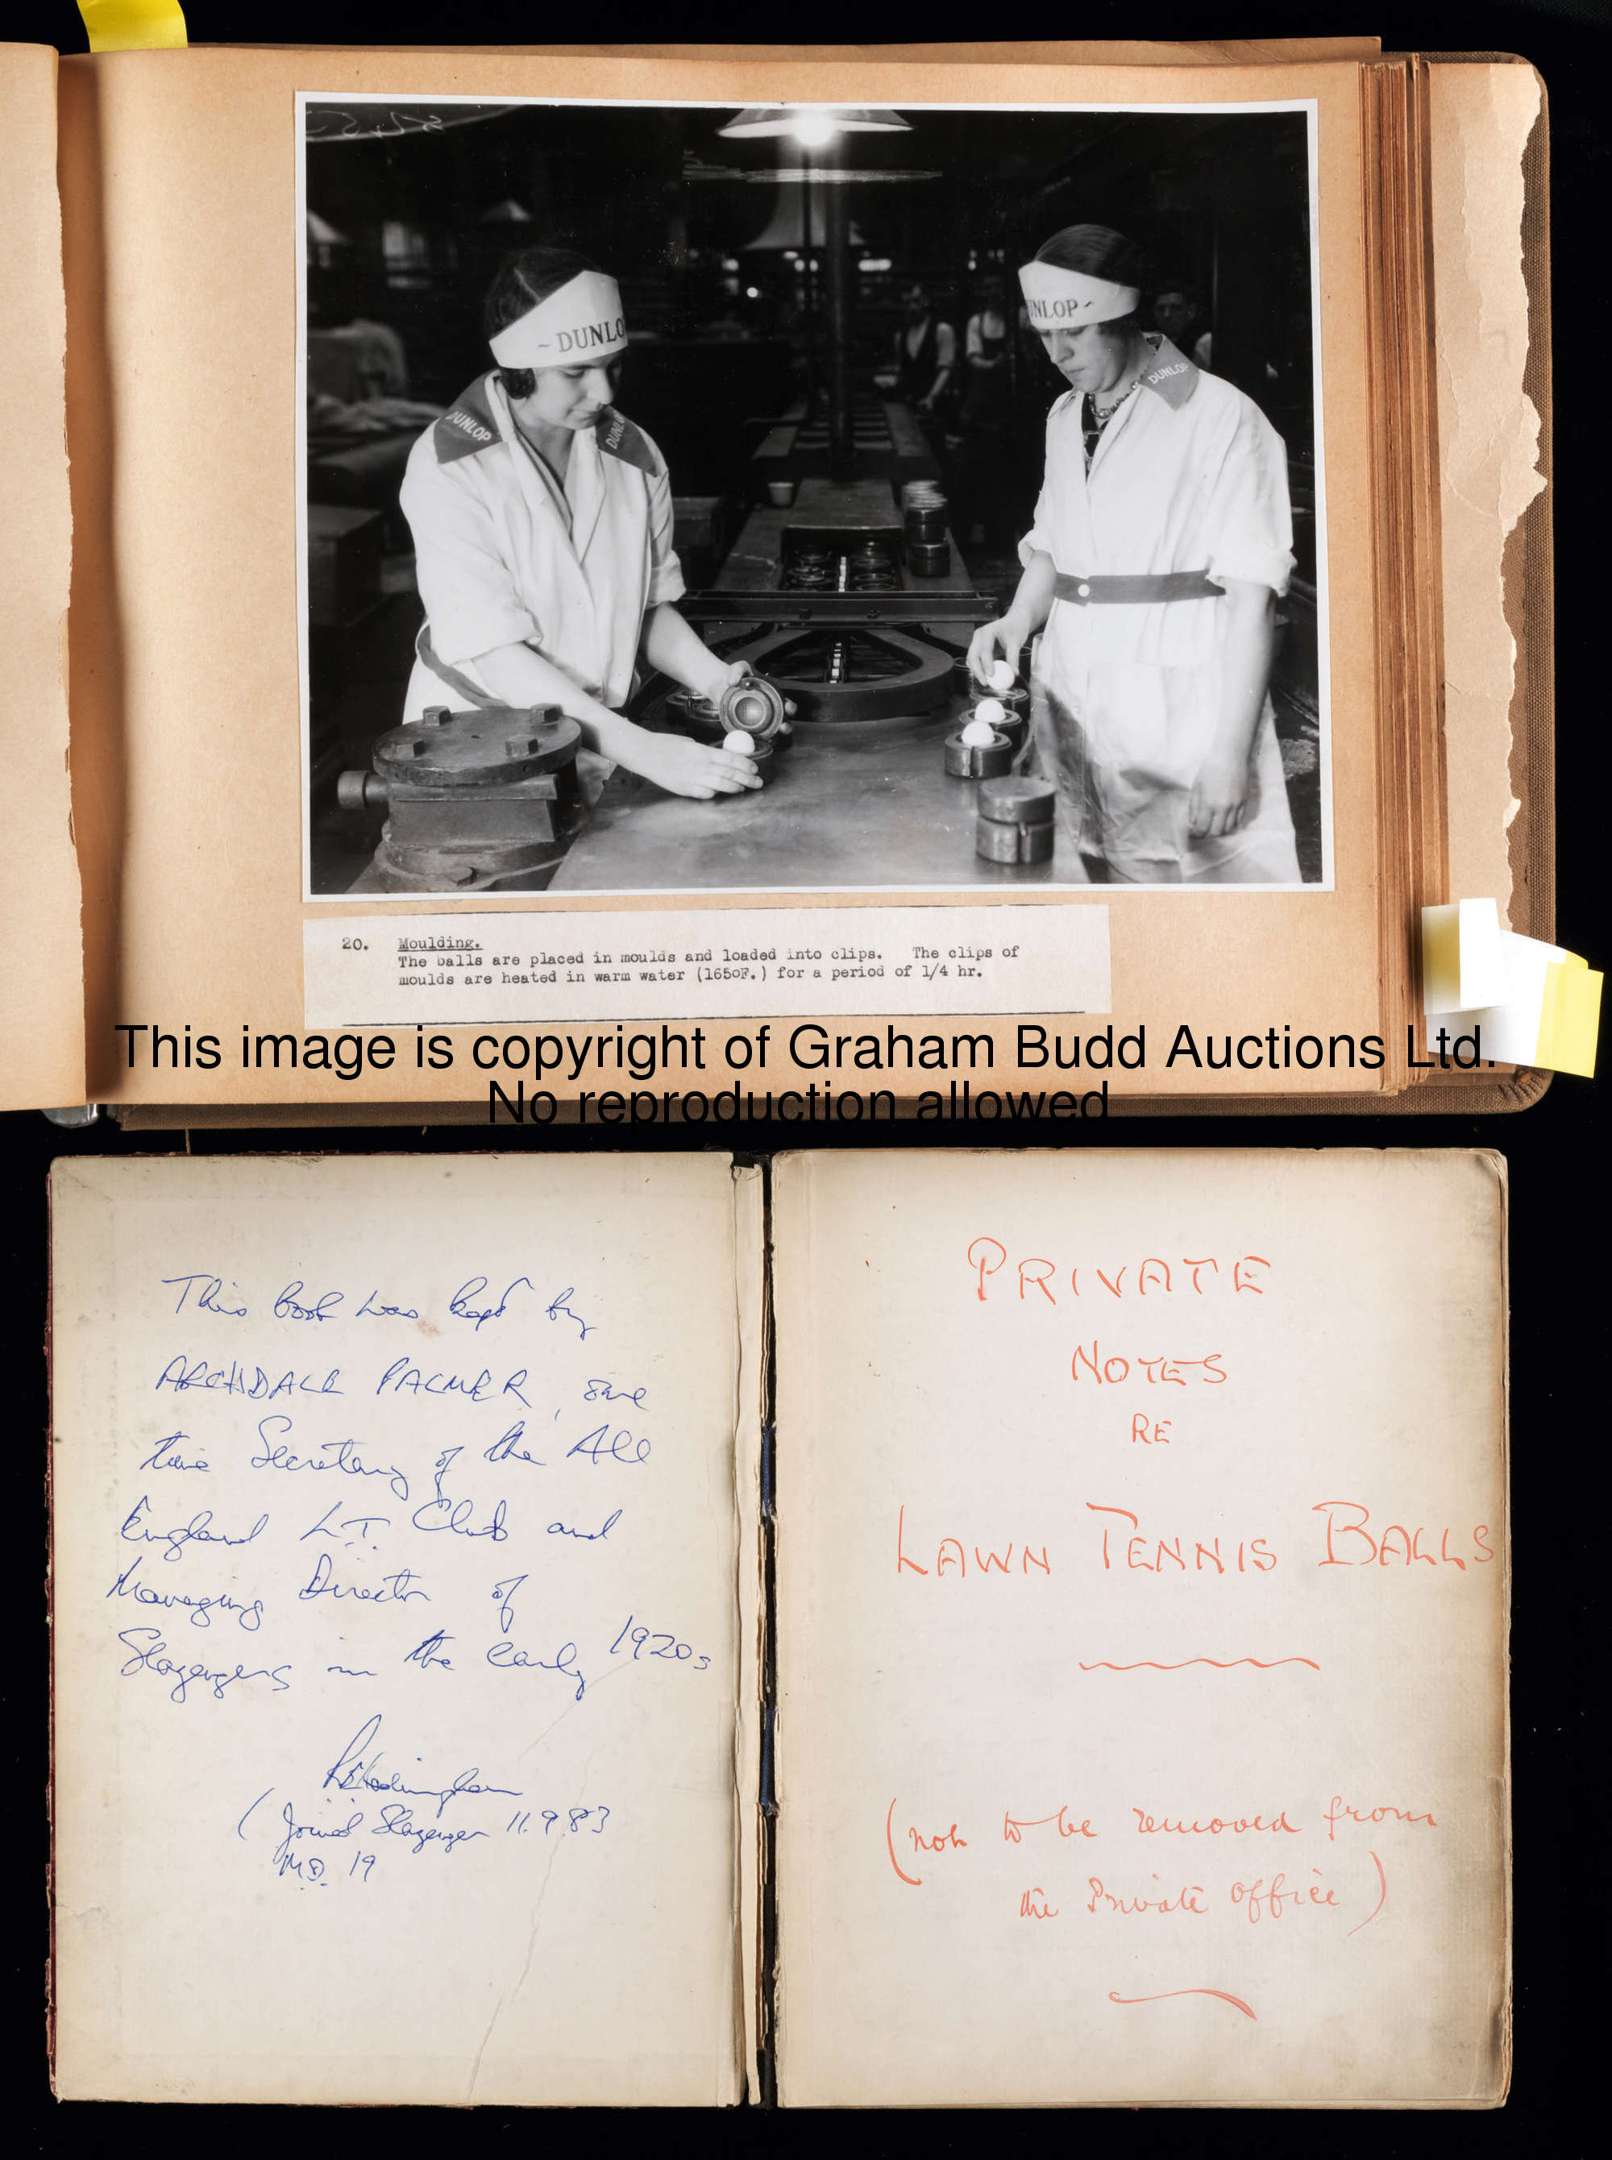 ~ DUNLO
UNLOP ~
DUNLOP
DUNL
DUNLOP
20. Moulding.
The balls are placed in moulds and loaded into clips. The clips of
moulds are heated in warm water (165oF.) for a period of 1/4 hr.
This image is copyright of Graham Budd Auctions Ltd.
No reproduction allowed
This book was kept by
ARCHDALE PALMER, one
time Secretary of the All
England L.T. Club and
Managing Director of
Slazengers in the early 1920s
(Joined Slazenger 11.9.83
M.D. 19
PRIVATE
NOTES
RE
LAWN TENNIS BALLS
(not to be removed from
the Private office)